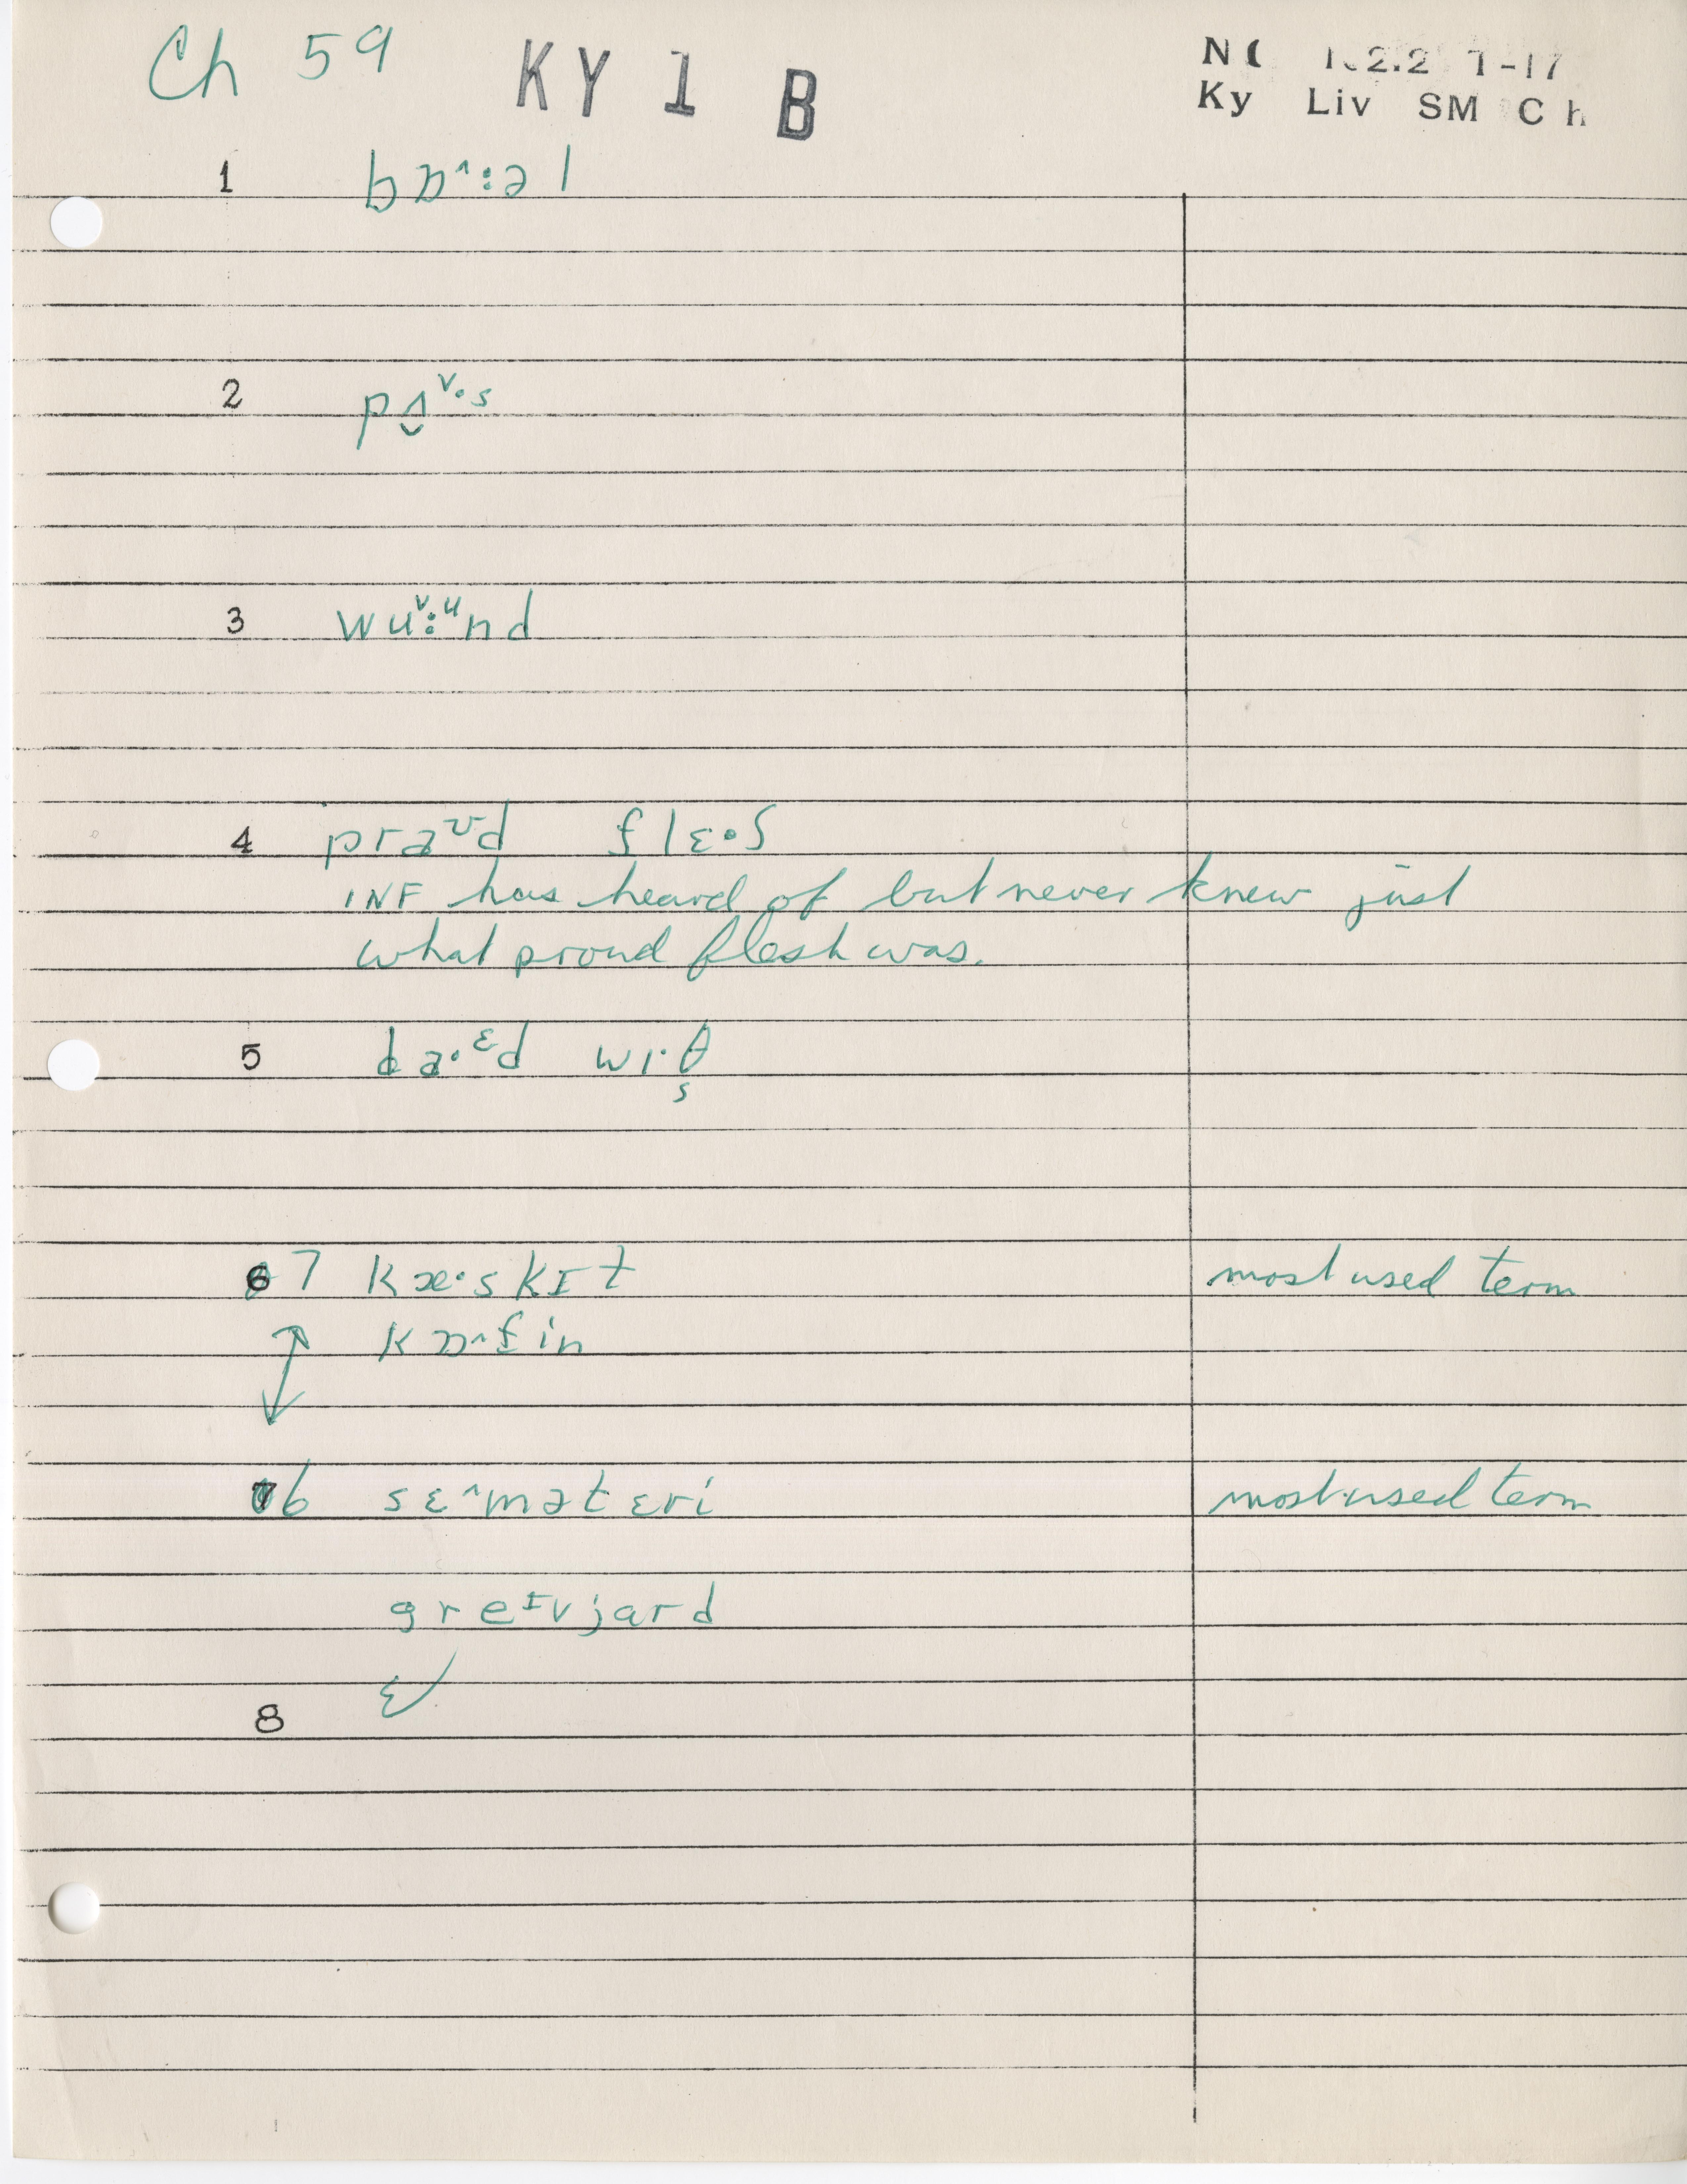 Ch 59 KY 1 B
Ky Liv SM Ch
1 bɒ˄:əl
2 pʌ̬ᵛ·s
3 wuᵛ:ᵘnd
4 praᶷd flɛ·ʃ
INF has heard of but never knew just
what proud flesh was.
5 da·ᵋd wɪ·θ
s
6 7 kæ·skɪt most used term
kɒ˄·fin
7 6 sɛ˄məteri most used term
greᶦvjard
8 ɛ